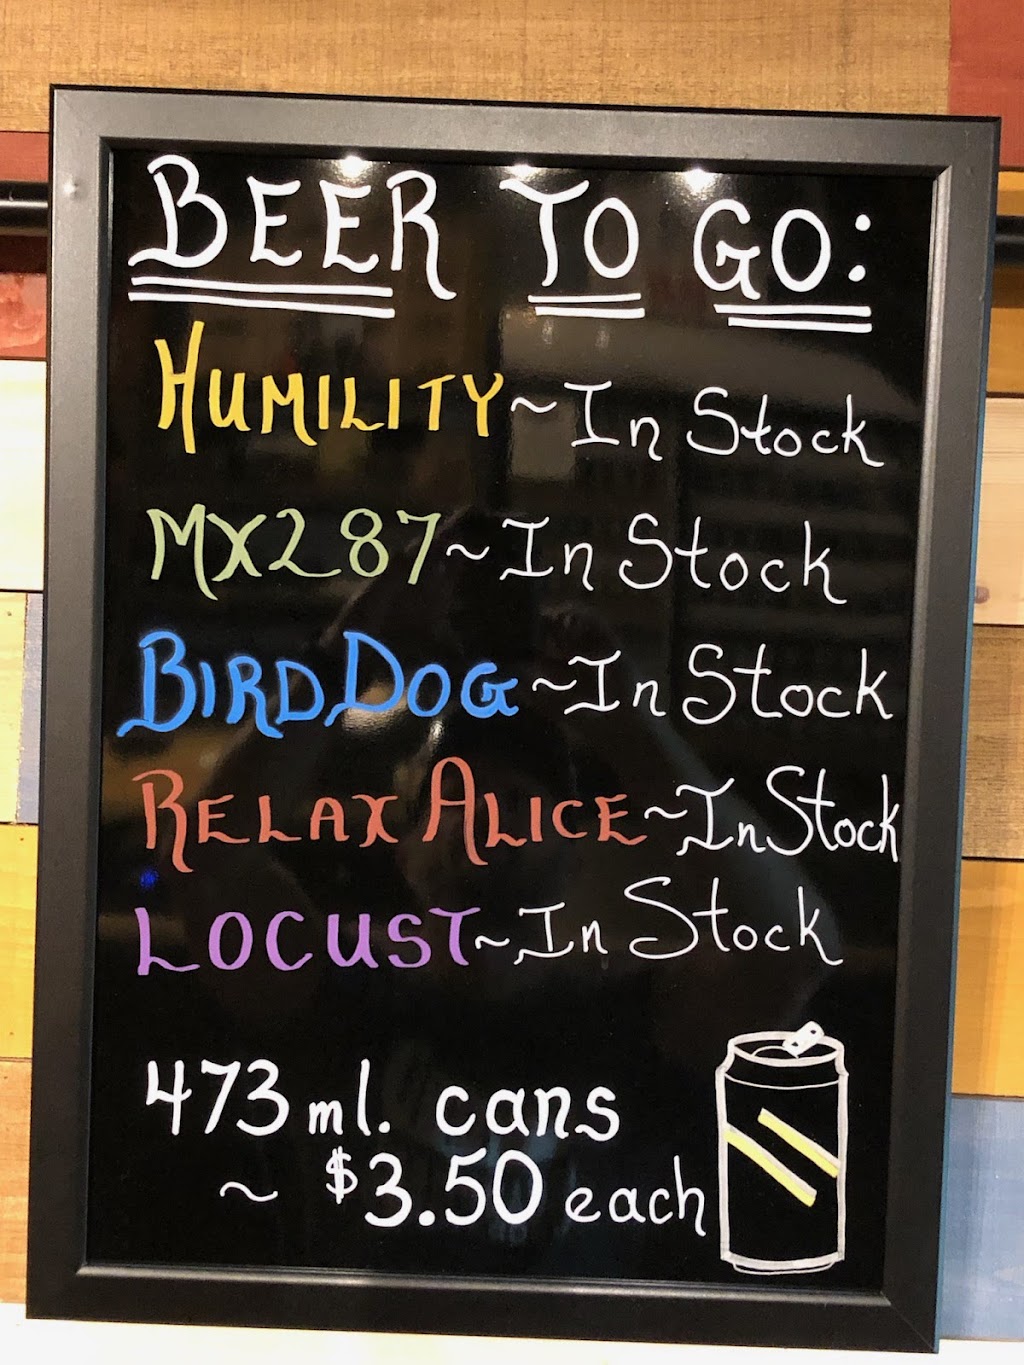 BEER TO GO:
HUMILITY ~ In Stock
MX287 ~ In Stock
BIRD DOG ~ In Stock
RELAX ALICE ~ In Stock
LOCUST ~ In Stock
473 ml. cans
~ $3.50 each